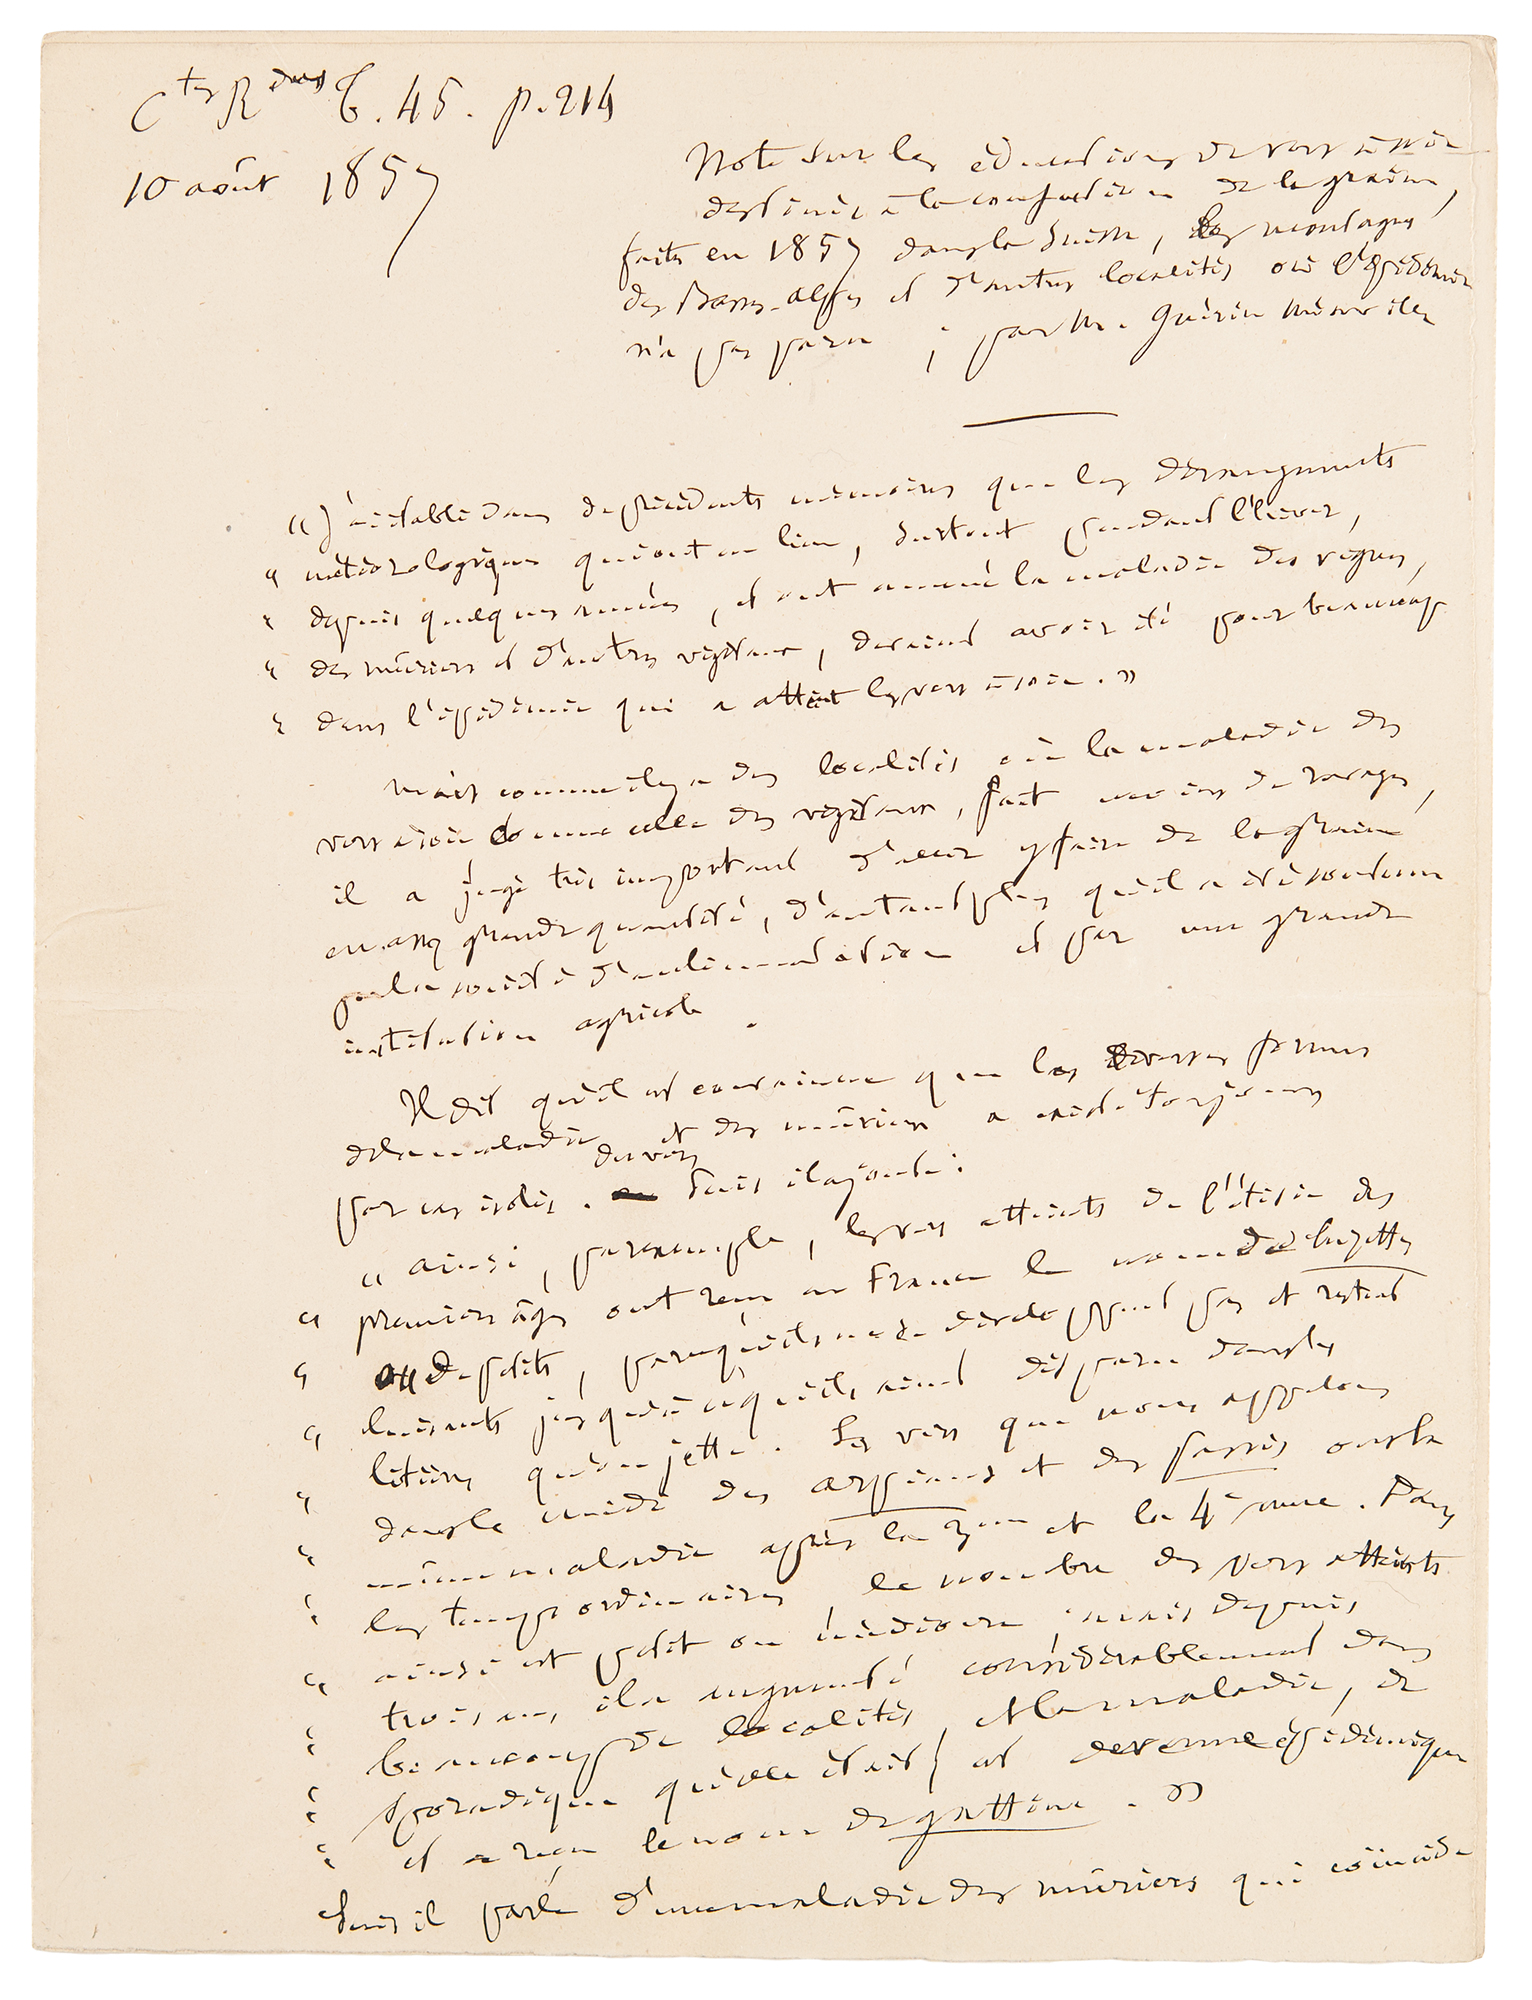 Ctes Rdus T. 45. p. 214
10 août 1857
Note sur les éducations de vers à soie
destinés à la confection de la graine,
faites en 1857 dans la Suisse, les montagnes
des Basses-Alpes et d'autres localités où l'épidémie
n'a pas paru ; par M. Guérin Méneville
« J'ai établi dans de précédents mémoires que les dérangements
« météorologiques qui ont eu lieu, surtout pendant l'hiver,
« depuis quelques années, et ont amené la maladie des vignes,
« des mûriers et d'autres végétaux, devaient avoir été pour beaucoup
« dans l'épidémie qui a atteint les vers à soie. »
Mais comme il y a des localités où la maladie des
vers à soie comme celle des végétaux, fait moins de ravages,
il a jugé très important d'aller y faire de la graine
en assez grande quantité, d'autant plus qu'il a été soutenu
par la société d'acclimatation et par une grande
institution agricole.
Il dit qu'il est convaincu que les diverses formes
de la maladie des vers et des mûriers a existé toujours
par cas isolés. Puis il ajoute :
« ainsi, par exemple, les vers atteints de l'étisie des
« premiers âges ont reçu en France le nom de luzettes
« ou de petits, parce qu'ils ne se développent pas et restent
« luisants jusqu'à ce qu'ils aient disparu dans les
« litières qu'on jette. Les vers que nous appelons
« dans le midi des arpians et des passis ont la
« même maladie après la 3me et la 4e mue. Dans
« les temps ordinaires, le nombre des vers atteints
« ainsi est petit ou médiocre, mais depuis
« trois ans, il a augmenté considérablement dans
« beaucoup de localités, et la maladie, de
« sporadique qu'elle était, est devenue épidémique
« et a reçu le nom de gattine. »
Puis il parle d'une maladie des mûriers qui coïncide